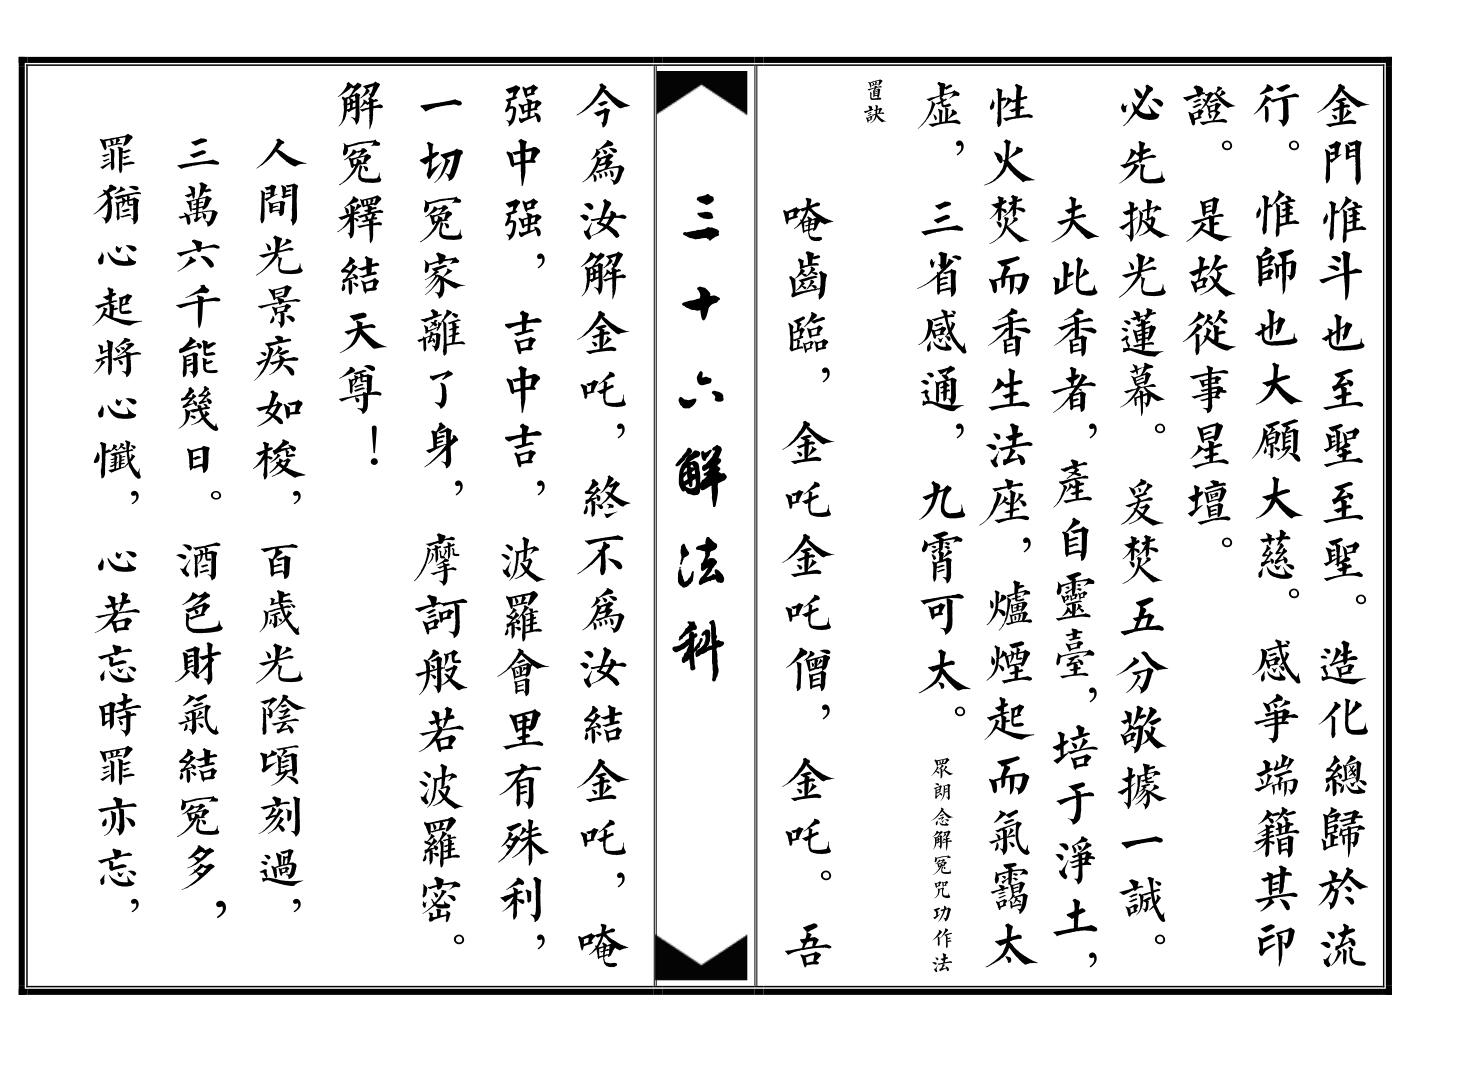 金門惟斗也至聖至聖。造化總歸於流
行。惟師也大願大慈。感爭端籍其印
證。是故從事星壇。
必先披光蓮幕。爰焚五分敬據一誠。
夫此香者，產自靈臺，培于淨土，
性火焚而香生法座，爐煙起而氣靄太
虛，三省感通，九霄可太。眾朗念解冤咒功作法
置訣
唵齒臨，金吒金吒僧，金吒。吾
三十六解法科
今爲汝解金吒，終不爲汝結金吒，唵
强中强，吉中吉，波羅會里有殊利，
一切冤家離了身，摩訶般若波羅密。
解冤釋結天尊！
人間光景疾如梭，百歳光陰頃刻過，
三萬六千能幾日。酒色財氣結冤多，
罪猶心起將心懺，心若忘時罪亦忘，